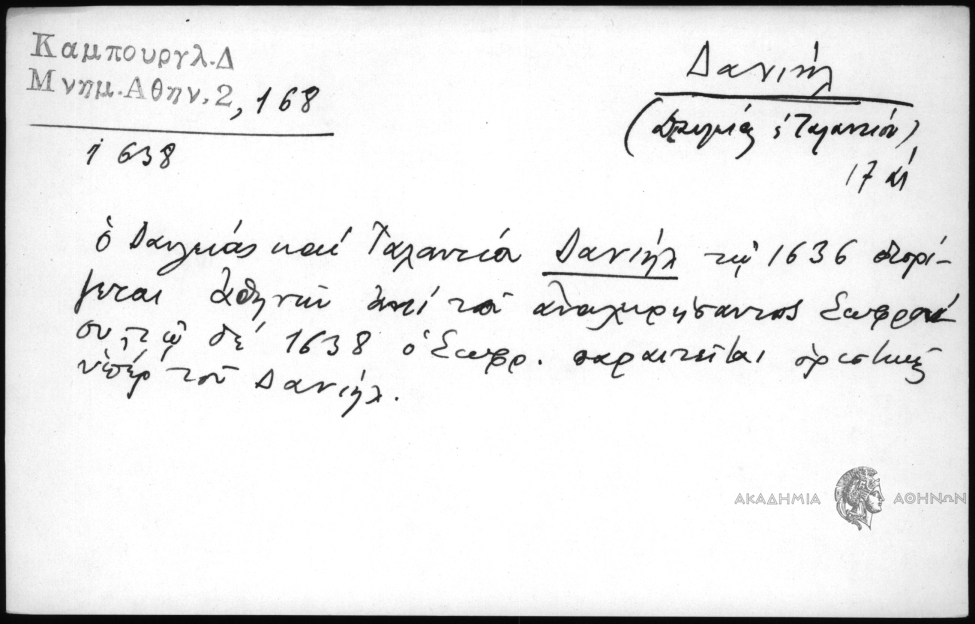 Καμπουργλ.Δ
Μνημ.Αθην.2, 168
1638
Δανιήλ
(Δαυλείας & Ταλαντίου)
17 αἰ
ὁ Δαυλείας καί Ταλαντίου Δανιήλ τῷ 1636 διορί-
ζεται Ἀθηνῶν ἀντί τοῦ ἀναχωρήσαντος Σωφρονί-
ου, τῷ δέ 1638 ὁ Σωφρ. παραιτεῖται ὁριστικῶς
ὑπέρ τοῦ Δανιήλ.
ΑΚΑΔΗΜΙΑ ΑΘΗΝΩΝ